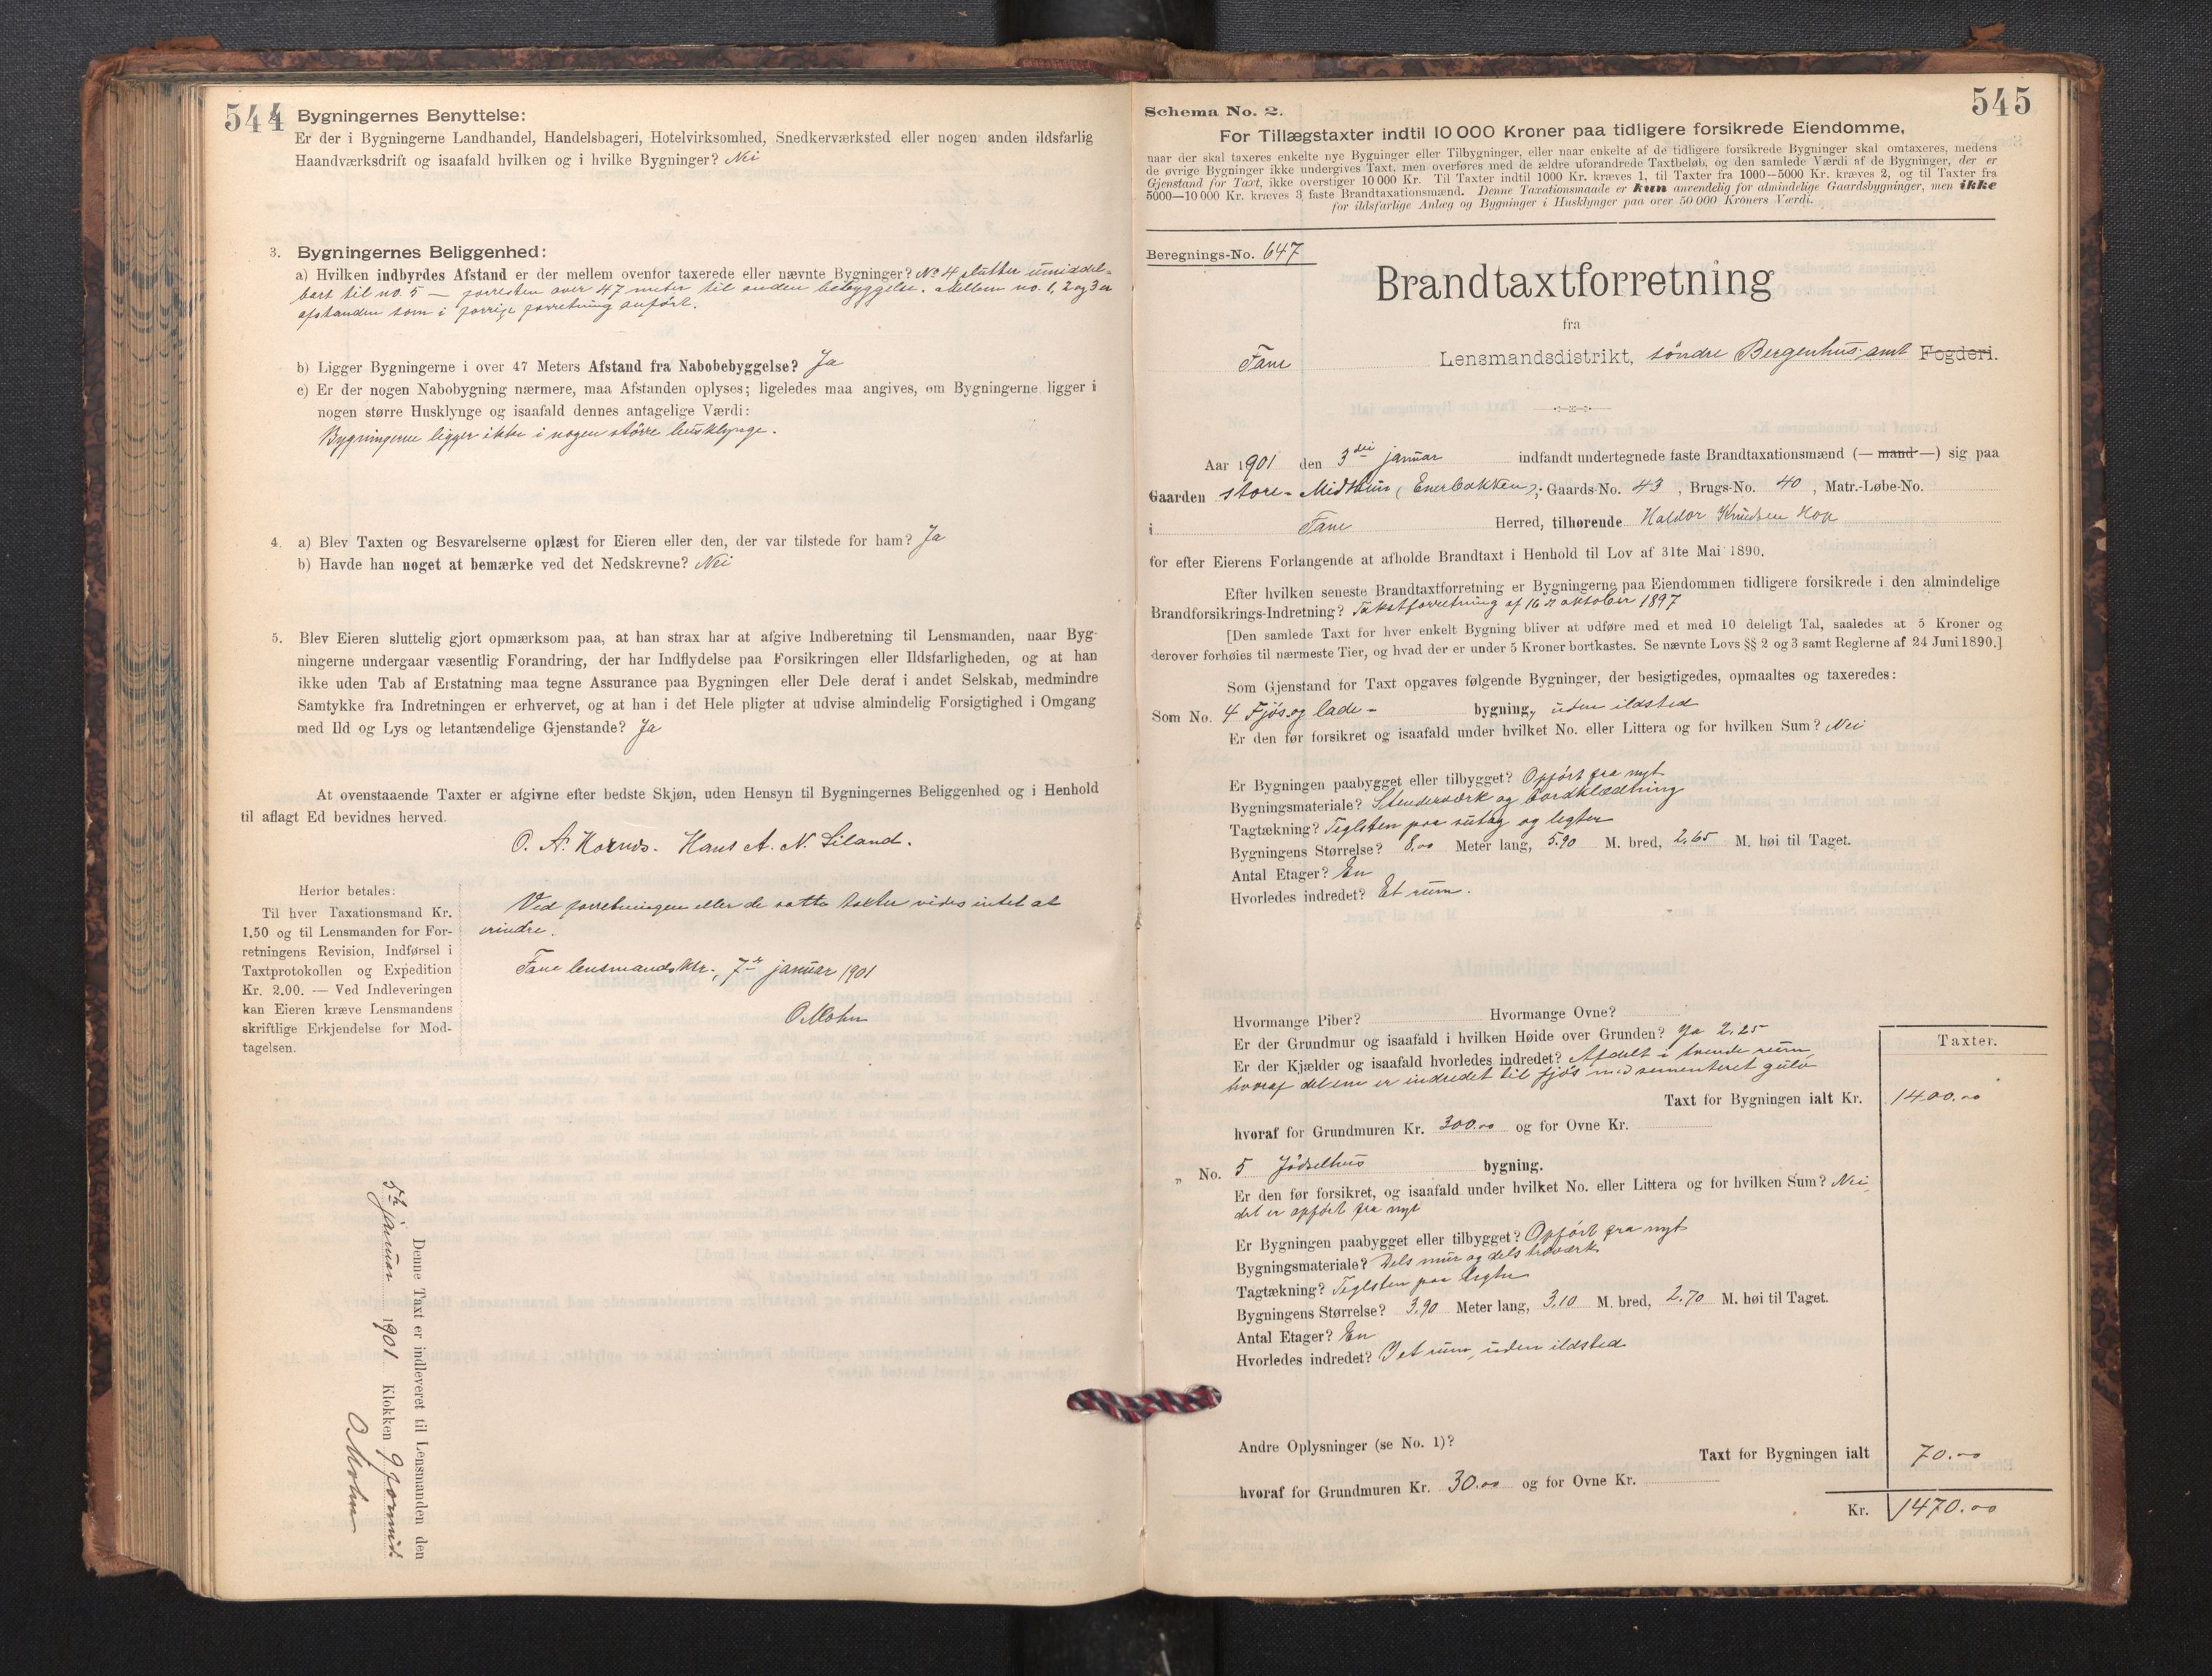 544
Bygningernes Benyttelse:
Er der i Bygningerne Landhandel, Handelsbageri, Hotelvirksomhed, Snedkerværksted eller nogen anden ildsfarlig
Haandværksdrift og isaafald hvilken og i hvilke Bygninger? Nei
3. Bygningernes Beliggenhed:
a) Hvilken indbyrdes Afstand er der mellem ovenfor taxerede eller nævnte Bygninger? No 4 slutter umiddel-
bart til no. 5 — forresten over 47 meter til anden bebyggelse. Mellem no. 1, 2 og 3 er
afstanden som i forrige forretning anført.
b) Ligger Bygningerne i over 47 Meters Afstand fra Nabobebyggelse? Ja
c) Er der nogen Nabobygning nærmere, maa Afstanden oplyses; ligeledes maa angives, om Bygningerne ligger i
nogen større Husklynge og isaafald dennes antagelige Værdi:
Bygningerne ligger ikke i nogen större husklynge.
4. a) Blev Taxten og Besvarelserne oplæst for Eieren eller den, der var tilstede for ham? Ja
b) Havde han noget at bemærke ved det Nedskrevne? Nei
5. Blev Eieren sluttelig gjort opmærksom paa, at han strax har at afgive Indberetning til Lensmanden, naar Byg-
ningerne undergaar væsentlig Forandring, der har Indflydelse paa Forsikringen eller Ildsfarligheden, og at han
ikke uden Tab af Erstatning maa tegne Assurance paa Bygningen eller Dele deraf i andet Selskab, medmindre
Samtykke fra Indretningen er erhvervet, og at han i det Hele pligter at udvise almindelig Forsigtighed i Omgang
med Ild og Lys og letantændelige Gjenstande? Ja
At ovenstaaende Taxter er afgivne efter bedste Skjøn, uden Hensyn til Bygningernes Beliggenhed og i Henhold
til aflagt Ed bevidnes herved.
O. A. Hornes. Hans A. N. Liland.
Herfor betales:
Til hver Taxationsmand Kr.
1.50 og til Lensmanden for For-
retningens Revision, Indførsel i
Taxtprotokollen og Expedition
Kr. 2.00. — Ved Indleveringen
kan Eieren kræve Lensmandens
skriftlige Erkjendelse for Mod-
tagelsen.
Ved forretningen eller de satte takster vides intet at
erindre.
Fane lensmandsktr., 7de januar 1901
O Mohn
Denne Taxt er indleveret til Lensmanden den
5te januar 1901 Klokken 9 formid.
O Mohn
545
Schema No. 2.
For Tillægstaxter indtil 10 000 Kroner paa tidligere forsikrede Eiendomme,
naar der skal taxeres enkelte nye Bygninger eller Tilbygninger, eller naar enkelte af de tidligere forsikrede Bygninger skal omtaxeres, medens
de øvrige Bygninger ikke undergives Taxt, men overføres med de ældre uforandrede Taxtbeløb, og den samlede Værdi af de Bygninger, der er
Gjenstand for Taxt, ikke overstiger 10 000 Kr. Til Taxter indtil 1000 Kr. kræves 1, til Taxter fra 1000—5000 Kr. kræves 2, og til Taxter fra
5000—10 000 Kr. kræves 3 faste Brandtaxationsmænd. Denne Taxationsmaade er kun anvendelig for almindelige Gaardsbygninger, men ikke
for ildsfarlige Anlæg og Bygninger i Husklynger paa over 50 000 Kroners Værdi.
Beregnings-No. 647
Brandtaxtforretning
fra
Fane Lensmandsdistrikt, söndre Bergenhus amt Fogderi.
Aar 1901 den 3die januar indfandt undertegnede faste Brandtaxationsmænd (— mand —) sig paa
Gaarden store-Midthun (Enerbakken), Gaards-No. 43, Brugs-No. 40, Matr.-Løbe-No.
i Fane Herred, tilhørende Haldor Knudsen Hop
for efter Eierens Forlangende at afholde Brandtaxt i Henhold til Lov af 31te Mai 1890.
Efter hvilken seneste Brandtaxtforretning er Bygningerne paa Eiendommen tidligere forsikrede i den almindelige
Brandforsikrings-Indretning? Takstforretning af 16de oktober 1897
[Den samlede Taxt for hver enkelt Bygning bliver at udføre med et med 10 deleligt Tal, saaledes at 5 Kroner og
derover forhøies til nærmeste Tier, og hvad der er under 5 Kroner bortkastes. Se nævnte Lovs §§ 2 og 3 samt Reglerne af 24 Juni 1890.]
Som Gjenstand for Taxt opgaves følgende Bygninger, der besigtigedes, opmaaltes og taxeredes:
Som No. 4 Fjös og lade- bygning, uden ildsted
Er den før forsikret og isaafald under hvilket No. eller Littera og for hvilken Sum? Nei
Er Bygningen paabygget eller tilbygget? Opført fra nyt
Bygningsmateriale? Stenderværk og bordklædning
Tagtækning? Teglsten paa sutag og legter
Bygningens Størrelse? 8.00 Meter lang, 5.90 M. bred, 2.65 M. høi til Taget.
Antal Etager? En
Hvorledes indredet? Et rum.
Hvormange Piber? Hvormange Ovne?
Er der Grundmur og isaafald i hvilken Høide over Grunden? Ja 2.25
Er der Kjælder og isaafald hvorledes indredet? Afdelt i tvende rum,
hvoraf det ene er indredet til fjös med sementeret gulv
Taxter.
Taxt for Bygningen ialt Kr. 1400.00
hvoraf for Grundmuren Kr. 300.00 og for Ovne Kr.
„ No. 5 Jödselhus bygning.
Er den før forsikret, og isaafald under hvilket No. eller Littera og for hvilken Sum? Nei,
det er opført fra nyt
Er Bygningen paabygget eller tilbygget? Opført fra nyt
Bygningsmateriale? Dels mur og dels træværk
Tagtækning? Teglsten paa legter
Bygningens Størrelse? 3.90 Meter lang, 3.10 M. bred, 2.70 M. høi til Taget.
Antal Etager? En
Hvorledes indredet? I et rum, uden ildsted
Andre Oplysninger (se No. 1)?
Taxt for Bygningen ialt 70.00
hvoraf for Grundmuren Kr. 30.00 og for Ovne Kr.
Kr. 1470.00